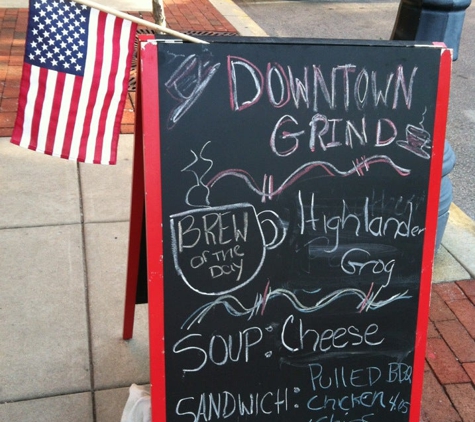 DOWNTOWN
GRIND
BREW
OF THE
DAY
Highlander
Grog
SOUP: Cheese
SANDWICH: PULLED BBQ
CHICKEN